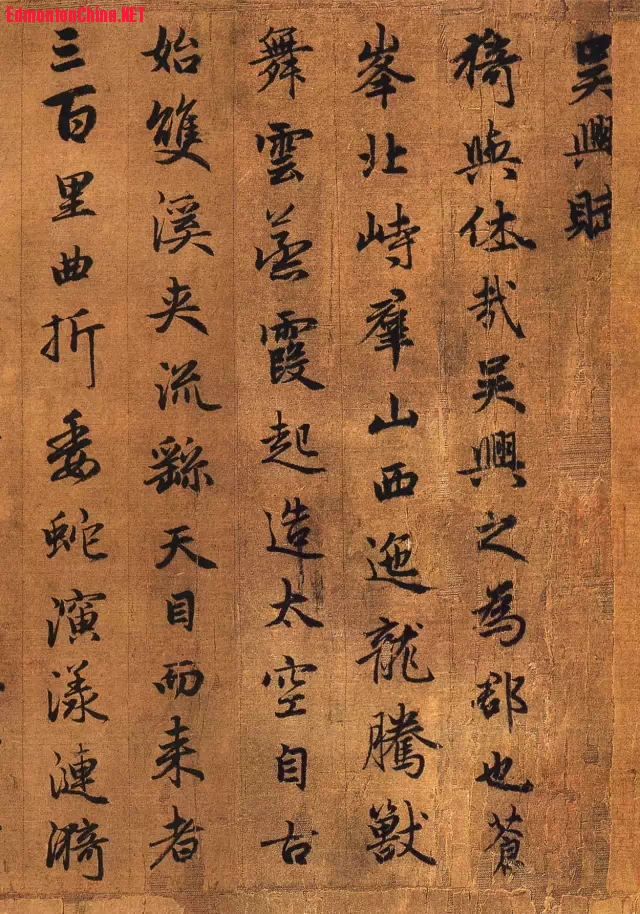 EdmontonChina.NET
吳興賦
猗與休哉吳興之為郡也蒼
峯北峙羣山西迤龍騰獸
舞雲蒸霞起造太空自古
始雙溪夾流繇天目而来者
三百里曲折委蛇演漾漣漪